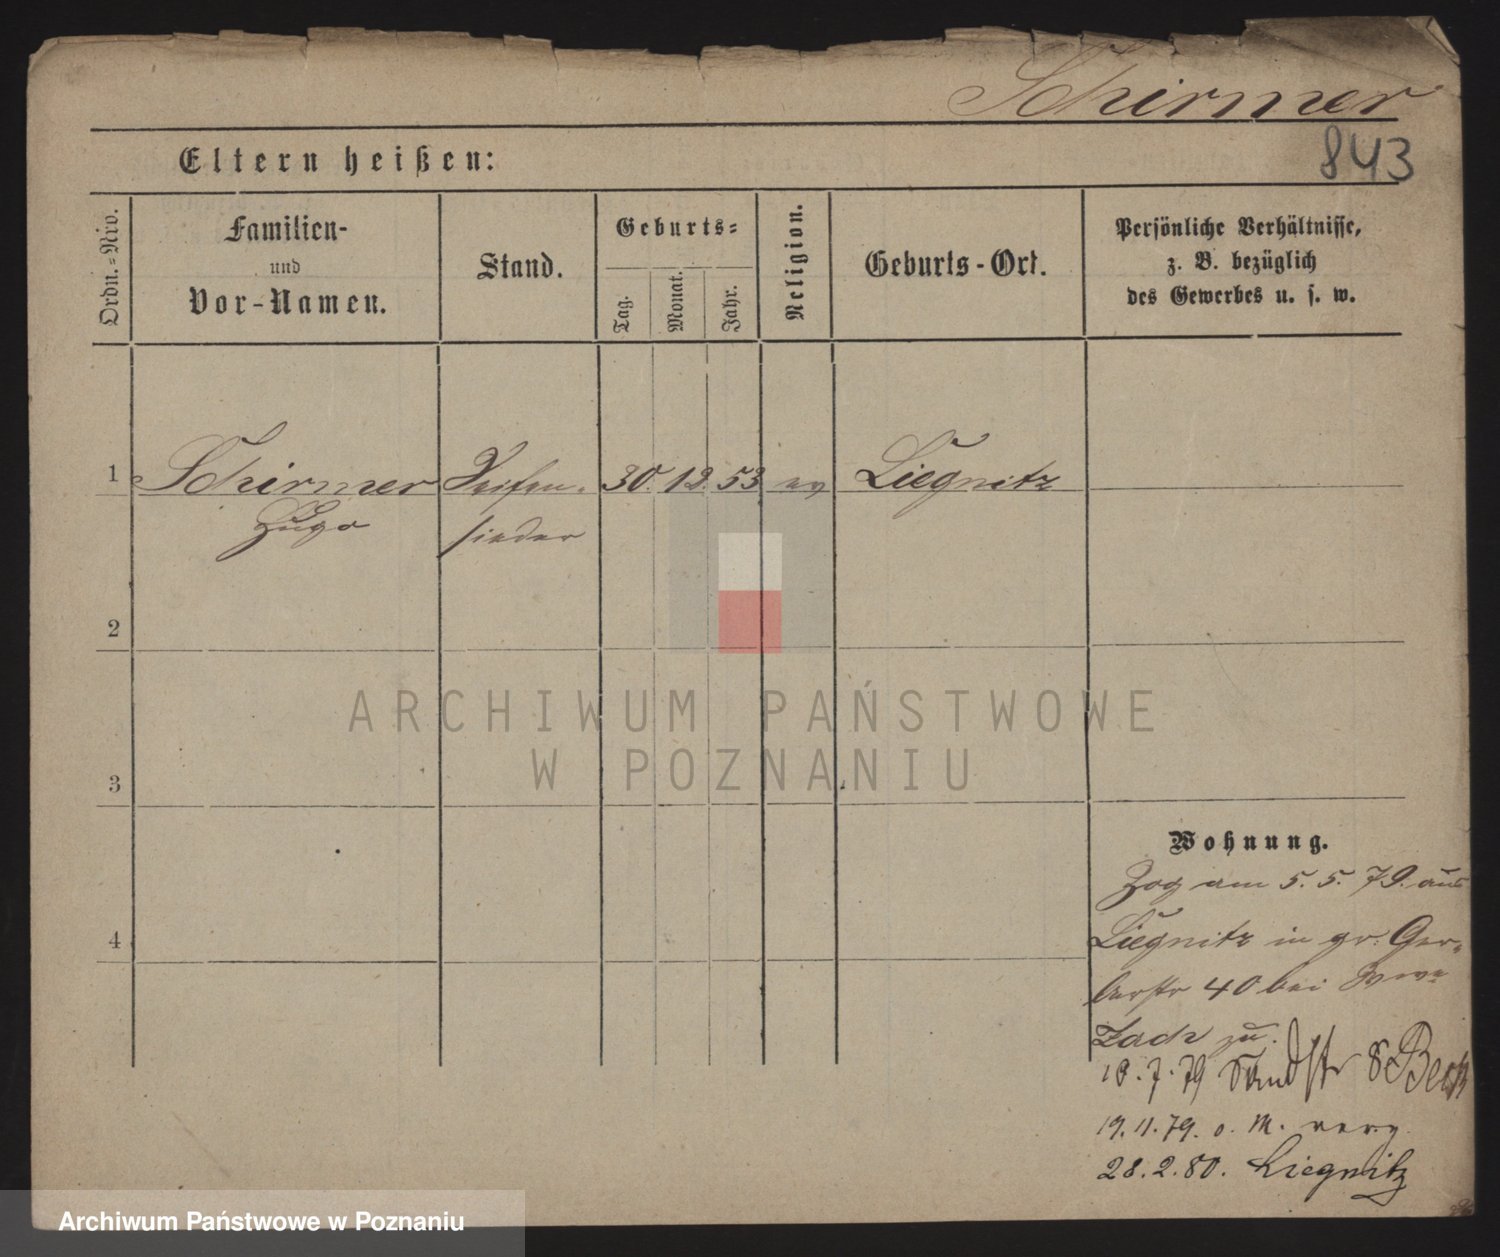 Schirmer
843
Eltern heißen:
Ordn.-Nro.
Familien-
und
Vor-Namen.
Stand.
Geburts-
Tag.
Monat.
Jahr.
Religion.
Geburts-Ort.
Persönliche Verhältnisse,
z. B. bezüglich
des Gewerbes u. s. w.
1 Schirmer Seifen- 30. 12. 53 ev Liegnitz
Hugo sieder
2
ARCHIWUM PAŃSTWOWE
W POZNANIU
3
Wohnung.
Zog am 5. 5. 79. aus
4
Liegnitz in gr. Ger-
berstr 40 bei Wwe
zu.
18. 7. 79 Sandstr 8
19. 11. 79. o. M. verz
28. 2. 80. Liegnitz
Archiwum Państwowe w Poznaniu